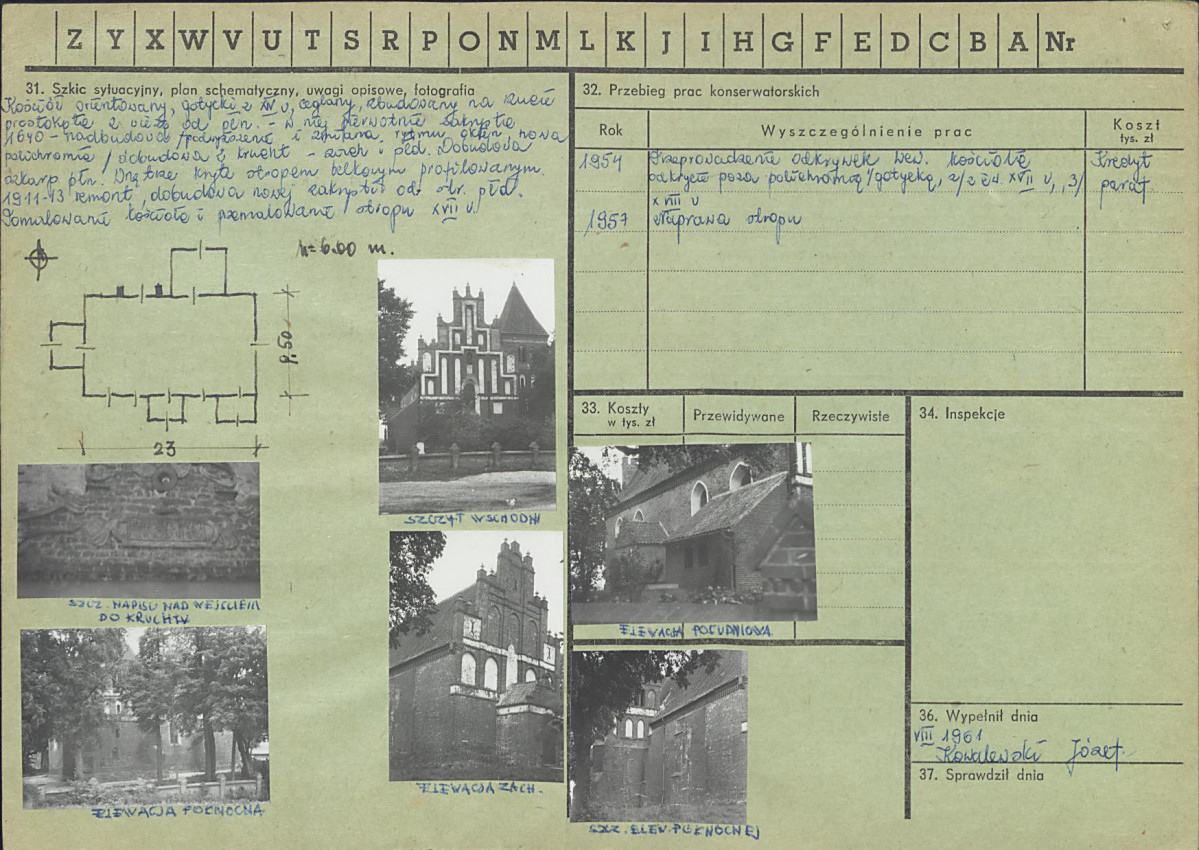 Z Y X W V U T S R P O N M L K J I H G F E D C B A Nr
31. Szkic sytuacyjny, plan schematyczny, uwagi opisowe, fotografia
Kościół orientowany, gotycki z XIV w, ceglany, zbudowany na rzucie
prostokąta z wieżą od płn. - w niej pierwotnie zakrystia
1640 - nadbudowa /podwyższenie i zmiana rytmu okien, nowa
polichromia / dobudowa 2 krucht - zach i płd. Dobudowa
szkarp płn. Wnętrze kryte stropem belkowym profilowanym.
1911-13 remont, dobudowa nowej zakrystii od str. płd.
Pomalowanie kościoła i przemalowanie stropu XVII w.
h=6.00 m.
9.50
23
SZCZYT WSCHODNI
SZCZ. NAPISU NAD WEJŚCIEM
DO KRUCHTY
ELEWACJA PÓŁNOCNA
ELEWACJA ZACH.
32. Przebieg prac konserwatorskich
Rok
Wyszczególnienie prac
Koszt
tys. zł
1954 Przeprowadzenie odkrywek wew. kościoła Kredyt
odkryto poza polichromią /gotycką, 2/ z XVII w, 3/ paraf
XVIII w
1957 Naprawa stropu
33. Koszty
w tys. zł
Przewidywane
Rzeczywiste
34. Inspekcje
ELEWACJA POŁUDNIOWA
SZCZ. ELEW. PÓŁNOCNEJ
36. Wypełnił dnia
VIII 1961
Kowalewski Józef
37. Sprawdził dnia